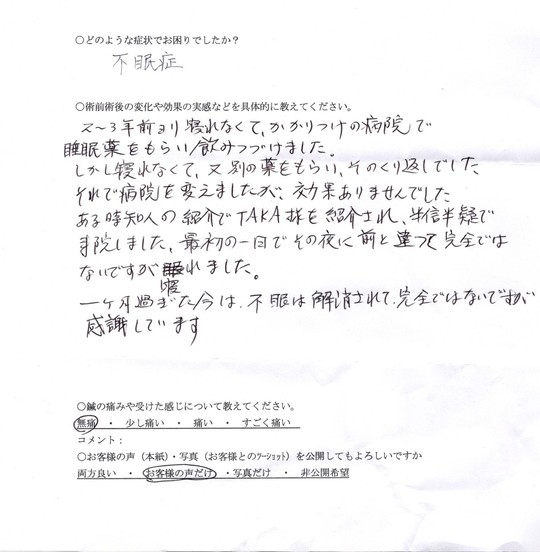 ○どのような症状でお困りでしたか？
不眠症
○術前術後の変化や効果の実感などを具体的に教えてください。
2〜3年前より寝れなくて、かかりつけの病院で
睡眠薬をもらい飲みつづけました。
しかし寝れなくて、又別の薬をもらい、そのくり返しでした
それで病院を変えましたが、効果ありませんでした
ある時知人の紹介でTAKA様を紹介され、半信半疑で
来院しました、最初の一日でその夜に前と違って完全では
ないですが寝れました。
一ヶ月過ぎた今は、不眠は解消されて、完全ではないですが
感謝しています
○鍼の痛みや受けた感じについて教えてください。
無痛 ・ 少し痛い ・ 痛い ・ すごく痛い
コメント：
○お客様の声（本紙）・写真（お客様とのﾂｰｼｮｯﾄ）を公開してもよろしいですか
両方良い ・ お客様の声だけ ・写真だけ ・ 非公開希望